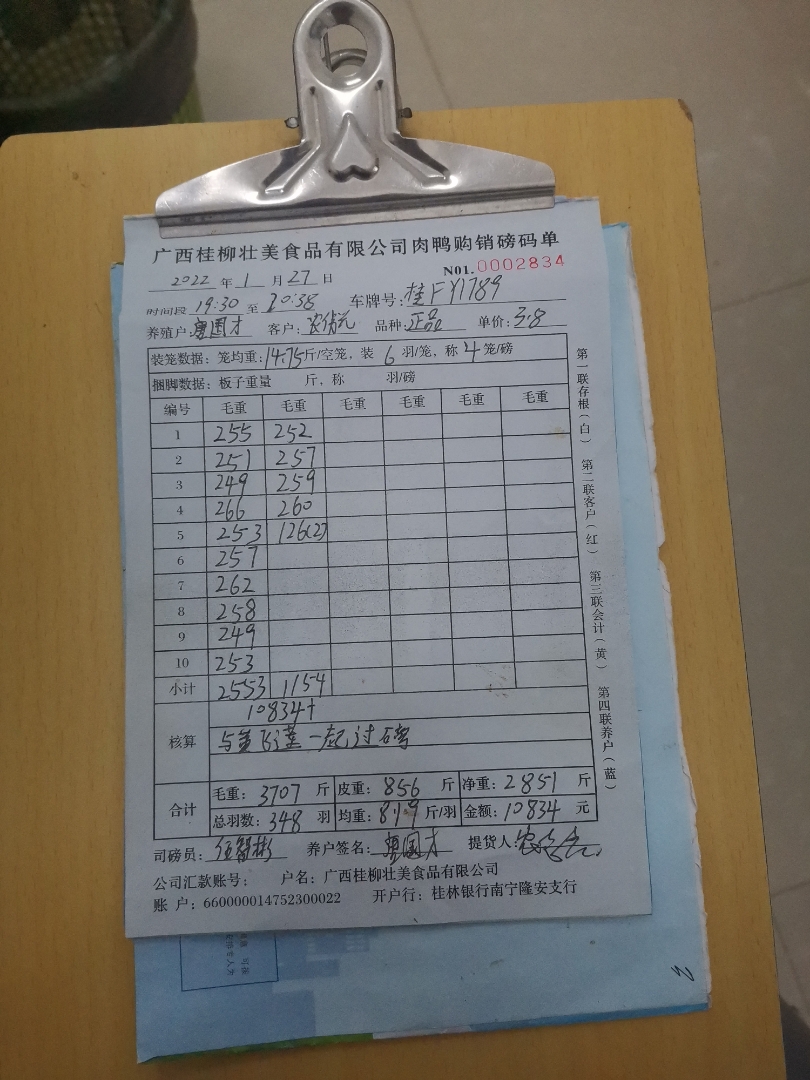 广西桂柳壮美食品有限公司肉鸭购销磅码单
2022 年 1 月 27 日 N01.0002834
时间段 19:30 至 20:38 车牌号:桂FY1789
养殖户: 国才 客户:农 品种:正品 单价:3.8
装笼数据:笼均重:14.75斤/空笼,装 6 羽/笼,称 4 笼/磅
捆脚数据:板子重量 斤,称 羽/磅
编号 毛重 毛重 毛重 毛重 毛重 毛重
1 255 252
2 251 257
3 249 259
4 266 260
5 253 126(2)
6 257
7 262
8 258
9 249
10 253
小计 2553 1154
10834+
核算 与 飞 一起过磅
合计 毛重:3707 斤 皮重:856 斤 净重:2851 斤
总羽数:348 羽 均重:8.19 斤/羽 金额:10834 元
司磅员:伍智彬 养户签名: 国才 提货人:农
公司汇款账号: 户名:广西桂柳壮美食品有限公司
账 户:660000014752300022 开户行:桂林银行南宁隆安支行
第一联存根(白) 第二联客户(红) 第三联会计(黄) 第四联养户(蓝)